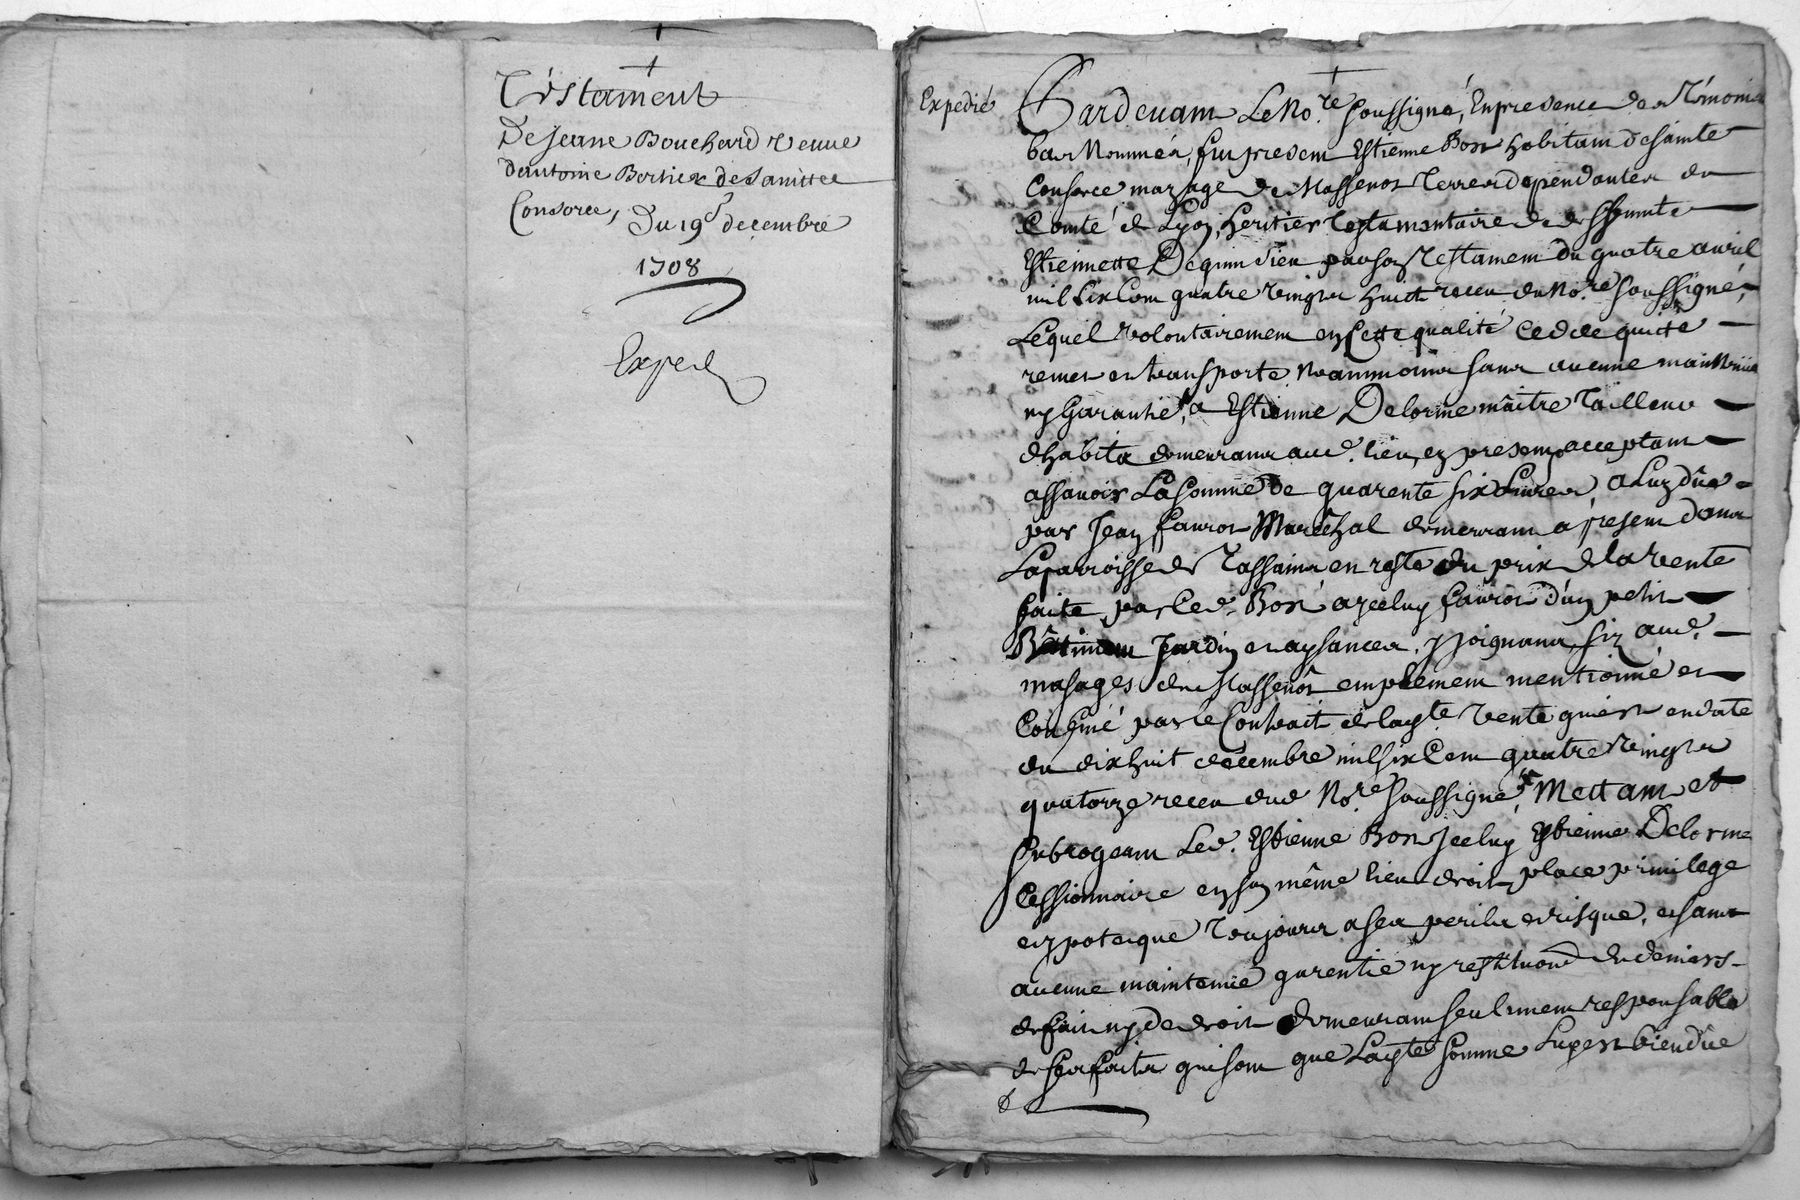 Testament
De Jeanne Bouchard veuue
d'antoine Bertier de Saintte
Consorce, Du 19e decembre
1708
Exped
Expedié
Pardeuant Le No.re soussigné, En presence des Témoins
bas Nommés, fut present Estienne Bost habitant de sainte
Consorce, mazage de Massenot Terres dependantes du
Comté de Lyon, heritier Testamentaire de deffuncte
Estiennette De par son Testament du quatre auril
mil six Cent quatre vingts huict receu du No.re soussigné,
Lequel volontairement en Cette qualité Cedde quitte
remet et transporte, Neantmoins sans aucune maintenüe
ny Garantie, a Estienne Delorme maître Tailleur
d'habits demeurant aud. lieu, cy present et acceptant
assauoir La Somme de quarente six Liures, a Luy düe
par Jean faurot Maréchal demeurant a present dans
La parroisse de Tassains en reste du prix de la vente
faite par led. Bost a yceluy faurot d'un petit
Bâtiment Jardin et aysances, y Joignants, siz aud.
masages de Massenot emplement mentionné et
Confiné par le Contrait de lad.te vente qui est en date
du dixhuit decembre mil six Cent quatre vingts
quatorze receu dud. No.re soussigné, Mettant et
subrogeant Led. Estienne Bost yceluy Estienne Delorme
Cessionnaire en son même lieu droit, place priuilege
et ypoteque Toujours a ses perils et risque, et sans
aucune maintenüe garentie ny restituon de deniers
de fait ny de droit demeurant seulement responsable
de ses faits qui sont que Lad.te somme Luy est bien düe